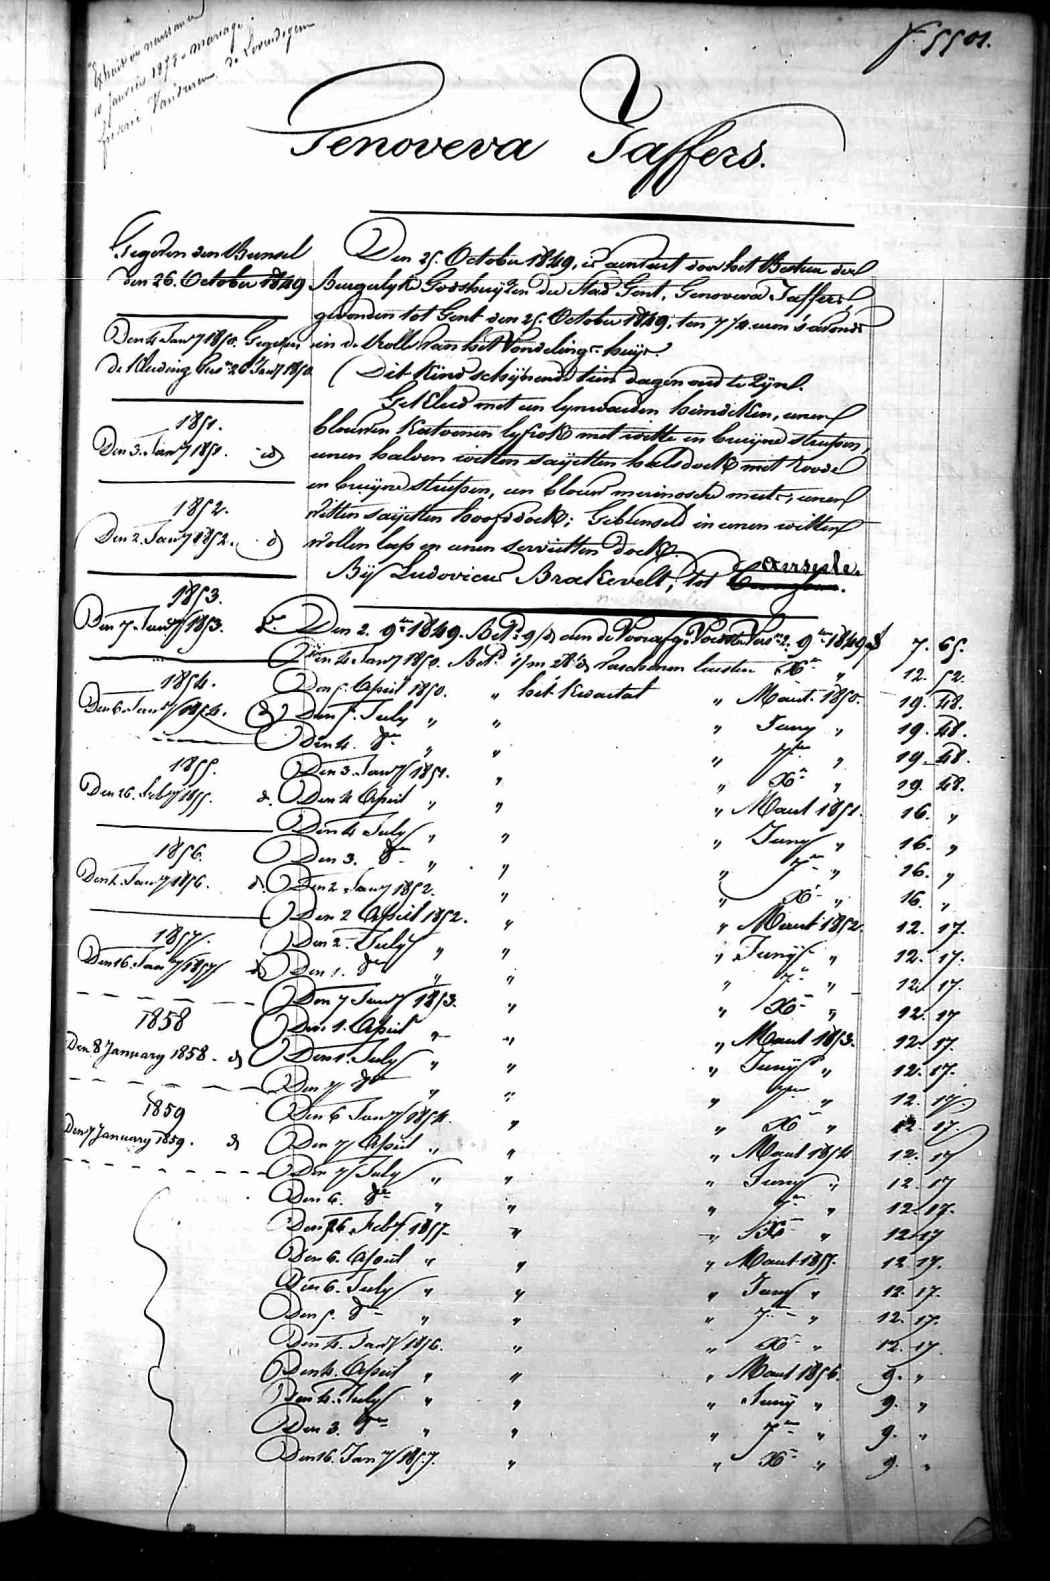 Extrait de naissance
10 Janvier 1878 mariage
de Lovendegem
N° 5501.
Genoveva Jaffers.
Gegeven den Bunsel
den 26. October 1849
Den 4 Jany 1850. Gegeven
de Kleding
1851.
Den 3. Jany 1851. id
1852.
Den 2. Jany 1852. d
1853.
Den 7. Jany 1853. d
1854.
Den 6. Jany 1854. d
1855.
Den 26. Feby 1855. d.
1856.
Den 4. Jany 1856. d.
1857.
Den 16. Jany 1857 d
1858
Den 8 January 1858. d
1859
Den 7 January 1859. d
Den 25. October 1849, is aenveert door het Bestuer der
Burgerlyke Godshuyzen der Stad Gent, Genoveva Jaffers,
gevonden tot Gent den 25. October 1849, ten 7 1/2 uren s'avonds
in de Rolle van het Vondelinge huys.
(Dit Kind schynende tien dagen oud te zyn).
Gekleed met een lynwaeden hemdeken, eenen
blauwen Katoenen lyfrok met witte en bruyne streepen,
eenen halven witten sayetten halsdoek met roode
en bruyne streepen, een blauw merinosche muts, eenen
witten sayetten hoofddoek; Gebunseld in eenen witten
wollen lap en eenen servietten doek.
Bij Ludovicus Brakevelt, tot Aerseele.
Den 2. 9ber 1849. Betd 9/d aen de Voorafg. Voedster 2. 9ber 1849 f 7. 65.
Den 4 Jany 1850. Betd laesten Xber " 12. 52.
Den 5. April 1850. " het Kwartael " Maart 1850. 19. 48.
Den 5. July " " " Juny " 19. 48.
Den 4. 8ber " " " 7ber " 19. 48.
Den 3. Jany 1851. " " Xber " 19. 48.
Den 4 April " " " Maart 1851. 16. "
Den 4 July " " " Juny " 16. "
Den 3. 8ber " " " 7ber " 16. "
Den 2 Jany 1852. " " Xber " 16. "
Den 2 April 1852. " " Maart 1852. 12. 17.
Den 2. July " " " Juny " 12. 17.
Den 1. 8ber " " " 7ber " 12. 17.
Den 7 Jany 1853. " " Xber " 12. 17
Den 1. April " " " Maart 1853. 12. 17.
Den 1. July " " " Juny " 12. 17.
Den 7 8ber " " " 7ber " 12. 17.
Den 6 Jany 1854. " " Xber " 12. 17.
Den 7 April " " " Maart 1854 12. 17
Den 7 July " " " Juny " 12. 17
Den 6. 8ber " " " 7ber " 12. 17.
Den 26 Feby. 1855. " " Xber " 12 17
Den 6. April " " " Maart 1855. 12. 17.
Den 6. July " " " Juny " 12. 17.
Den 5. 8ber " " " 7ber " 12. 17.
Den 4. Jany 1856. " " Xber " 12. 17.
Den 4. April " " " Maart 1856. 9. "
Den 4. July " " " Juny " 9. "
Den 3. 8ber " " " 7ber " 9. "
Den 16. Jany 1857. " " Xber " 9. "